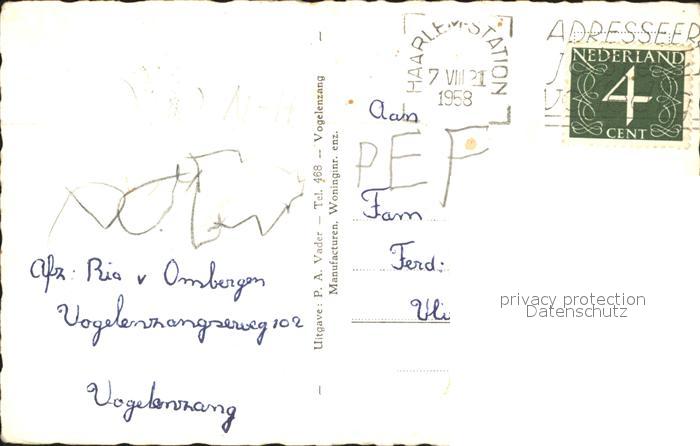 HAARLEM-STATION
7 VIII 21
1958
ADRESSEER
NEDERLAND
4
CENT
Aan
PEF
Fam
Ferd:
Vli
privacy protection
Datenschutz
Uitgave: P. A. Vader — Tel. 468 — Vogelenzang
Manufacturen, Woninginr. enz.
Afz: Ria v Ombergen
Vogelenzangseweg 102
Vogelenzang